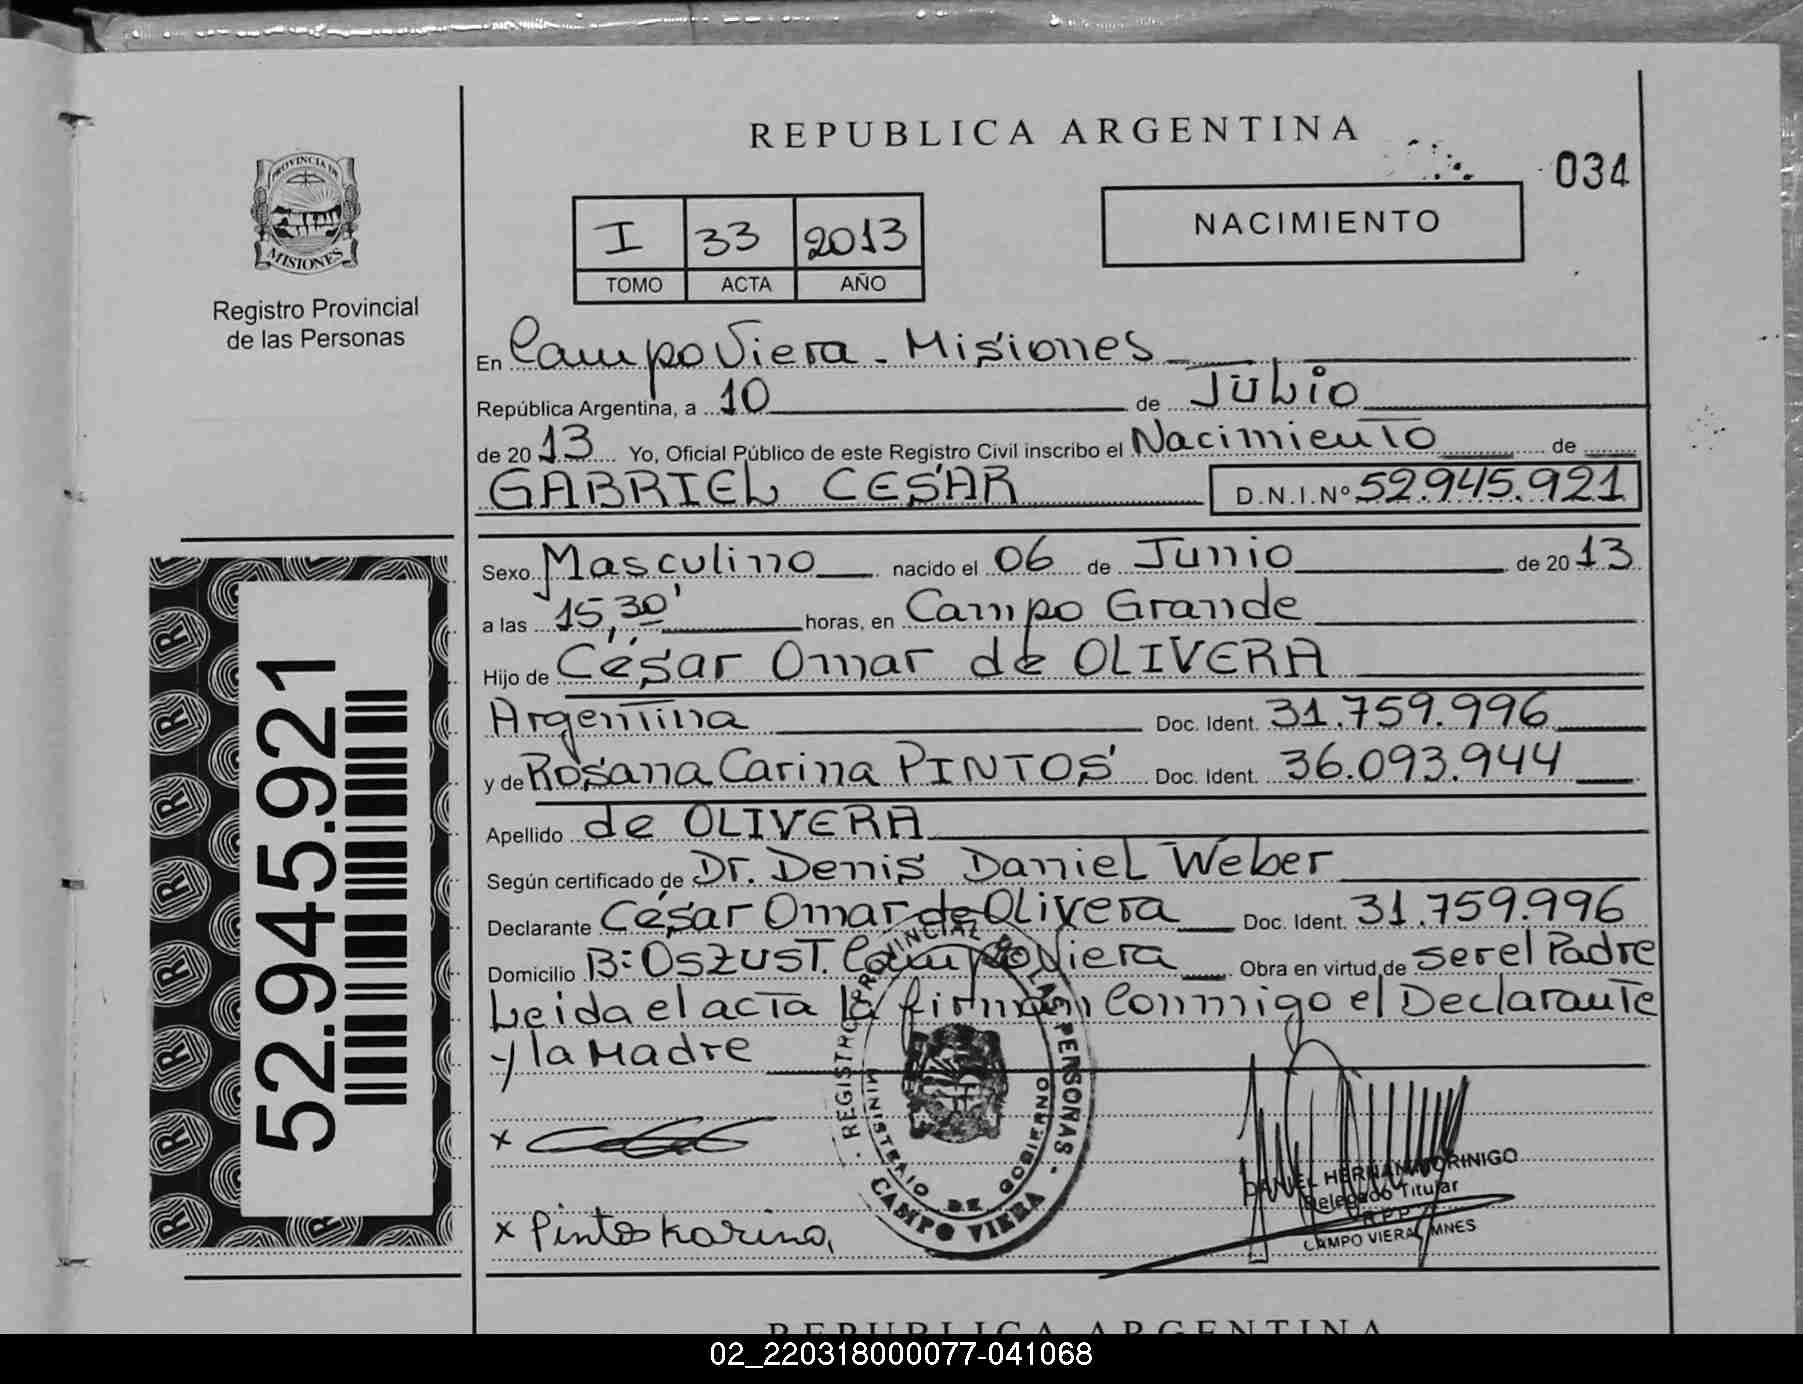 REPUBLICA ARGENTINA
034
PROVINCIA DE
MISIONES
Registro Provincial
de las Personas
I 33 2013
TOMO ACTA AÑO
NACIMIENTO
En Campo Viera - Misiones
República Argentina, a 10 de Julio
de 2013 Yo, Oficial Público de este Registro Civil inscribo el Nacimiento de
GABRIEL CESAR D.N.I.Nº 52.945.921
Sexo Masculino nacido el 06 de Junio de 2013
a las 15,30' horas, en Campo Grande
Hijo de César Omar de OLIVERA
Argentina Doc. Ident. 31.759.996
y de Rosana Carina PINTOS Doc. Ident. 36.093.944
Apellido de OLIVERA
Según certificado de Dr. Denis Daniel Weber
Declarante César Omar de Olivera Doc. Ident. 31.759.996
Domicilio B: Oszust. Campo Viera Obra en virtud de ser el Padre
Leida el acta la firman Conmigo el Declarante
y la Madre
x
x Pintos Karina,
52.945.921
REGISTRO PROVINCIAL DE LAS PERSONAS
MINISTERIO DE GOBIERNO
CAMPO VIERA
DANIEL HERNAN MORINIGO
Delegado Titular
R.P.P.
CAMPO VIERA, MNES
REPUBLICA ARGENTINA
02_220318000077-041068